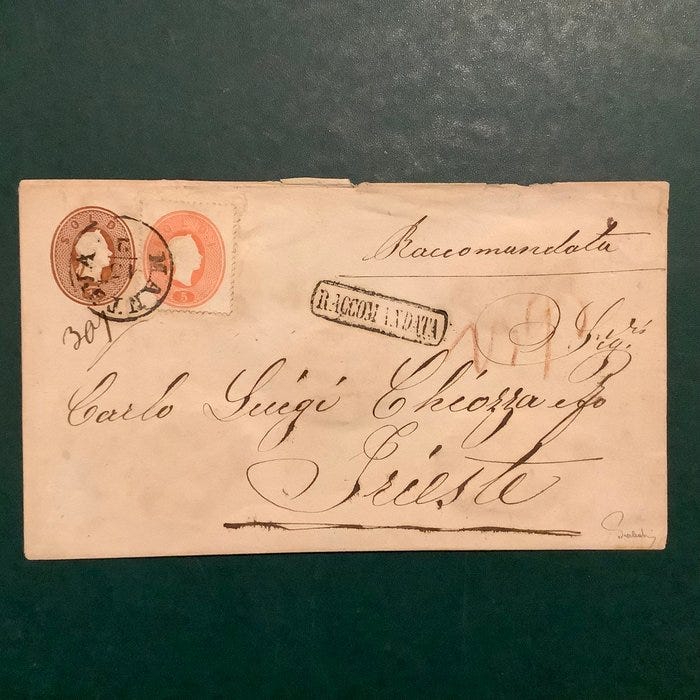 SOLDI
MANTOVA
5
Raccomandata
RACCOMANDATA
Sigri
Carlo Luigi Chiozza e fo
Trieste